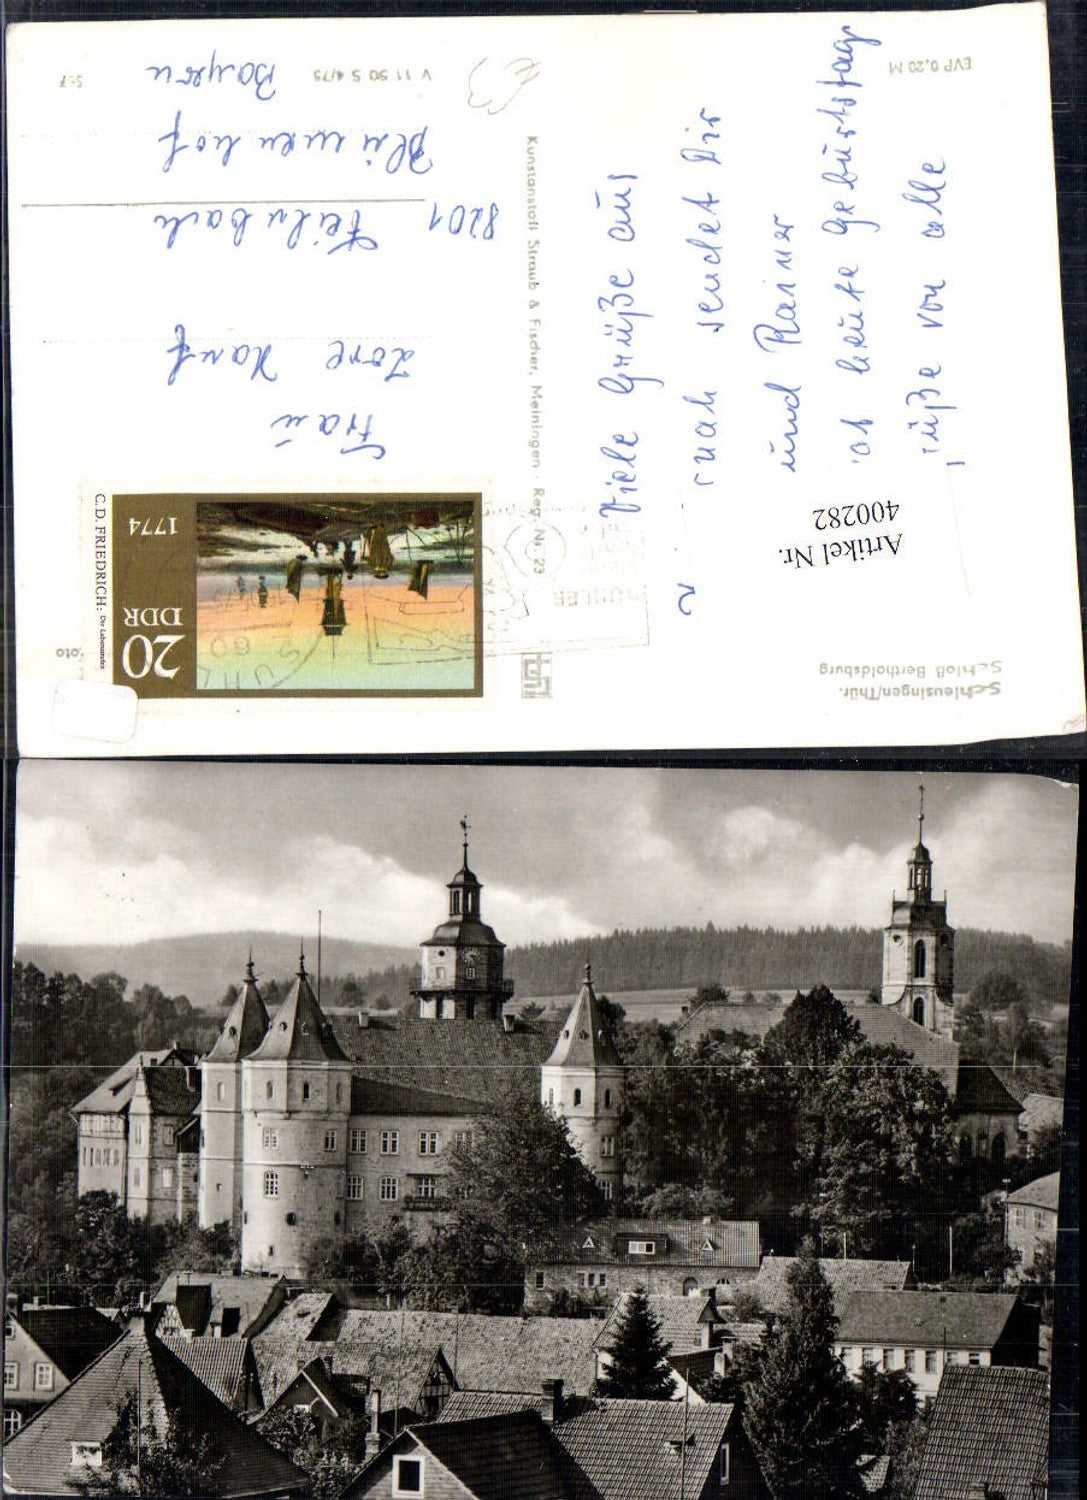 Schleusingen/Thür.
Schloß Bertholdsburg
Viele Grüße aus
sendet Dir
und Rainer
heute Geburtstag
von alle
Artikel Nr.
400282
EVP 0,20 M
Kunstanstalt Straub & Fischer, Meiningen · Reg. Nr. 23
V 11 50 S 4/75
C.D. FRIEDRICH: Die Lebensstufen
1774
DDR
20
SUHL
60
Frau
Lore
8201 Feilnbach
Bayern